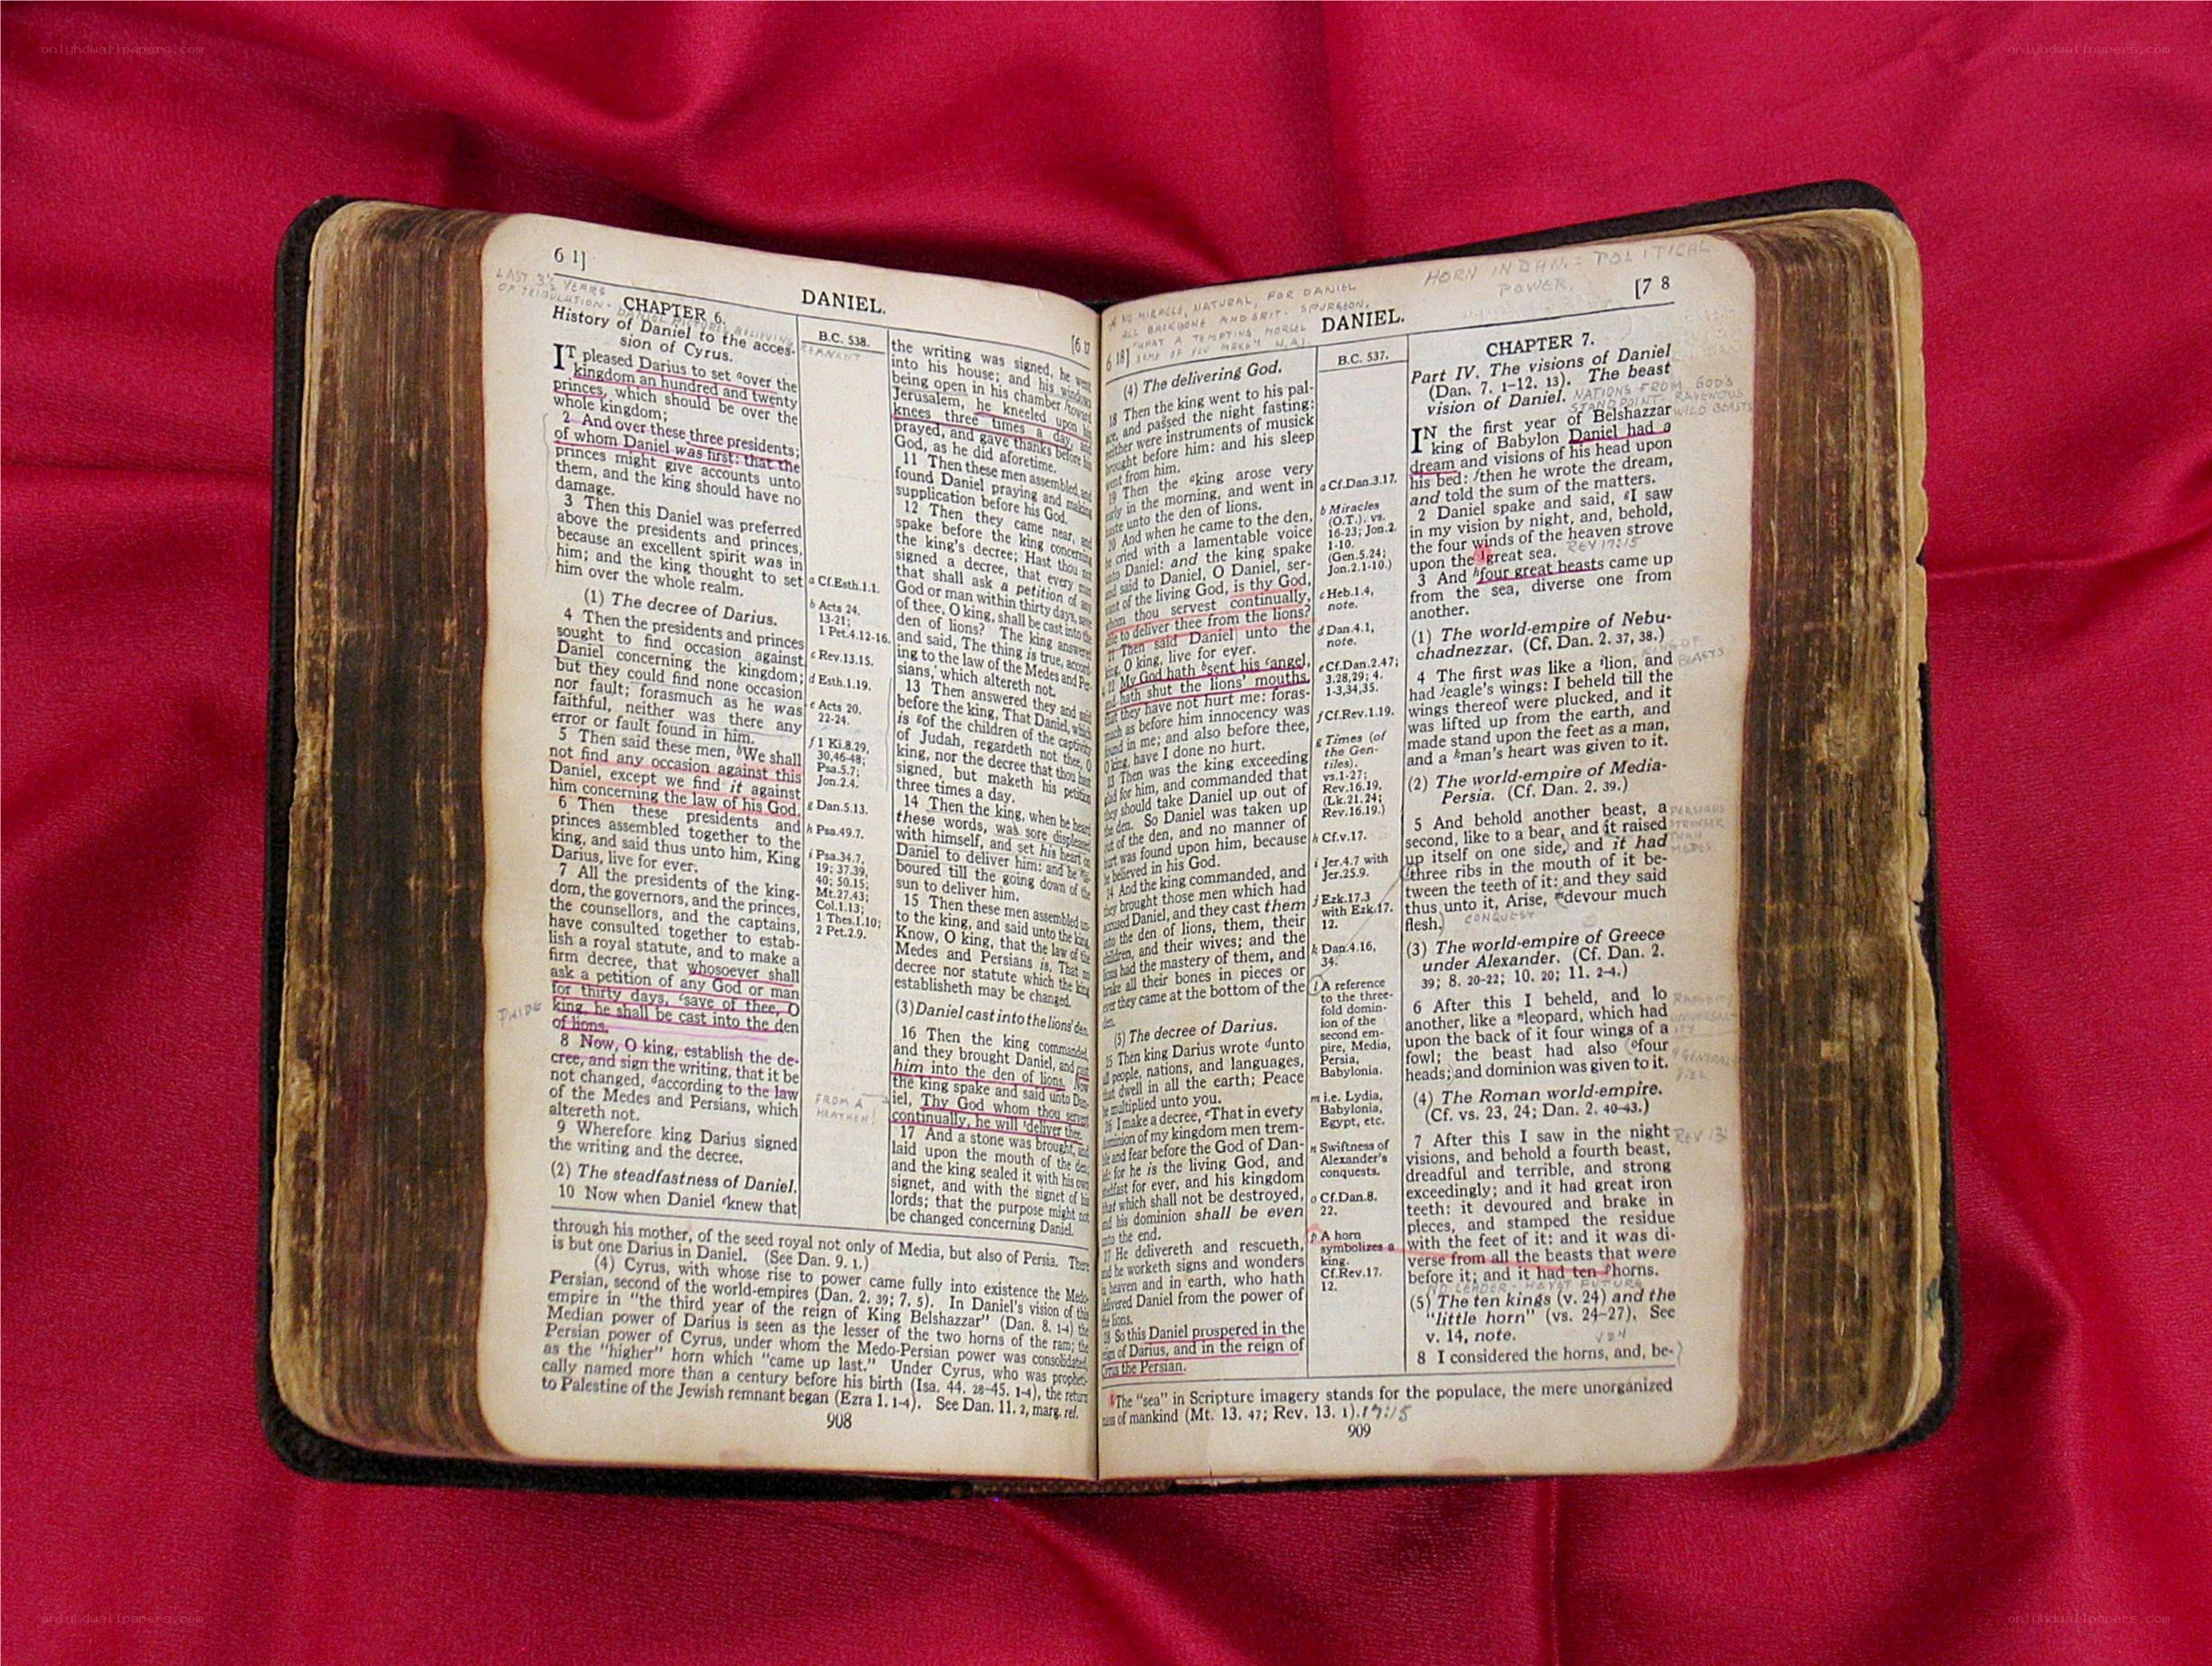 onlyhdwallpapers.com
onlyhdwallpapers.com
6 1]
DANIEL.
[6 17
LAST 3½ YEARS
OF TRIBULATION -
DANIEL PICTURES BELIEVING
REMNANT
CHAPTER 6.
History of Daniel to the acces-
sion of Cyrus.
IT pleased Darius to set ᵃover the
kingdom an hundred and twenty
princes, which should be over the
whole kingdom;
2 And over these three presidents;
of whom Daniel was first: that the
princes might give accounts unto
them, and the king should have no
damage.
3 Then this Daniel was preferred
above the presidents and princes,
because an excellent spirit was in
him; and the king thought to set
him over the whole realm.
(1) The decree of Darius.
4 Then the presidents and princes
sought to find occasion against
Daniel concerning the kingdom;
but they could find none occasion
nor fault; forasmuch as he was
faithful, neither was there any
error or fault found in him.
5 Then said these men, ᵇWe shall
not find any occasion against this
Daniel, except we find it against
him concerning the law of his God.
6 Then these presidents and
princes assembled together to the
king, and said thus unto him, King
Darius, live for ever.
7 All the presidents of the king-
dom, the governors, and the princes,
the counsellors, and the captains,
have consulted together to estab-
lish a royal statute, and to make a
firm decree, that whosoever shall
ask a petition of any God or man
for thirty days, ᶜsave of thee, O
king, he shall be cast into the den
of lions.
PRIDE
8 Now, O king, establish the de-
cree, and sign the writing, that it be
not changed, ᵈaccording to the law
of the Medes and Persians, which
altereth not.
9 Wherefore king Darius signed
the writing and the decree.
(2) The steadfastness of Daniel.
10 Now when Daniel ᵉknew that
B.C. 538.
a Cf.Esth.1.1.
b Acts 24.
13-21;
1 Pet.4.12-16.
c Rev.13.15.
d Esth.1.19.
e Acts 20.
22-24.
f 1 Ki.8.29,
30,46-48;
Psa.5.7;
Jon.2.4.
g Dan.5.13.
h Psa.49.7.
i Psa.34.7,
19; 37.39,
40; 50.15;
Mt.27.43;
Col.1.13;
1 Thes.1.10;
2 Pet.2.9.
FROM A
HEATHEN!
the writing was signed, he went
into his house; and his windows
being open in his chamber ᶠtoward
Jerusalem, he kneeled upon his
knees three times a day, and
prayed, and gave thanks before his
God, as he did aforetime.
11 Then these men assembled, and
found Daniel praying and making
supplication before his God.
12 Then they came near, and
spake before the king concerning
the king's decree; Hast thou not
signed a decree, that every man
that shall ask a petition of any
God or man within thirty days, save
of thee, O king, shall be cast into the
den of lions? The king answered
and said, The thing is true, accord-
ing to the law of the Medes and Per-
sians, which altereth not.
13 Then answered they and said
before the king, That Daniel, which
is ᵍof the children of the captivity
of Judah, regardeth not thee, O
king, nor the decree that thou hast
signed, but maketh his petition
three times a day.
14 Then the king, when he heard
these words, was sore displeased
with himself, and set his heart on
Daniel to deliver him: and he ʰla-
boured till the going down of the
sun to deliver him.
15 Then these men assembled un-
to the king, and said unto the king,
Know, O king, that the law of the
Medes and Persians is, That no
decree nor statute which the king
establisheth may be changed.
(3) Daniel cast into the lions' den.
16 Then the king commanded,
and they brought Daniel, and cast
him into the den of lions. Now
the king spake and said unto Dan-
iel, Thy God whom thou servest
continually, he will ⁱdeliver thee.
17 And a stone was brought, and
laid upon the mouth of the den;
and the king sealed it with his own
signet, and with the signet of his
lords; that the purpose might not
be changed concerning Daniel.
through his mother, of the seed royal not only of Media, but also of Persia. There
is but one Darius in Daniel. (See Dan. 9. 1.)
(4) Cyrus, with whose rise to power came fully into existence the Medo-
Persian, second of the world-empires (Dan. 2. 39; 7. 5). In Daniel's vision of this
empire in "the third year of the reign of King Belshazzar" (Dan. 8. 1-4) the
Median power of Darius is seen as the lesser of the two horns of the ram; the
Persian power of Cyrus, under whom the Medo-Persian power was consolidated,
as the "higher" horn which "came up last." Under Cyrus, who was propheti-
cally named more than a century before his birth (Isa. 44. 28-45. 1-4), the return
to Palestine of the Jewish remnant began (Ezra 1. 1-4). See Dan. 11. 2, marg. ref.
908
HORN IN DAN. = POLITICAL
POWER.
NO MIRACLE, NATURAL, FOR DANIEL
ALL BACKBONE AND GRIT - SPURGEON.
"WHAT A TEMPTING MORSEL
SOME OF YOU MAKE" W.A.
6 18]
DANIEL.
[7 8
(4) The delivering God.
18 Then the king went to his pal-
ace, and passed the night fasting:
neither were instruments of musick
brought before him: and his sleep
went from him.
19 Then the ᵃking arose very
early in the morning, and went in
haste unto the den of lions.
20 And when he came to the den,
he cried with a lamentable voice
unto Daniel: and the king spake
and said to Daniel, O Daniel, ser-
vant of the living God, is thy God,
whom thou servest continually,
able to deliver thee from the lions?
21 Then said Daniel unto the
king, O king, live for ever.
22 My God hath ᵇsent his ᶜangel,
and hath shut the lions' mouths,
that they have not hurt me: foras-
much as before him innocency was
found in me; and also before thee,
O king, have I done no hurt.
23 Then was the king exceeding
glad for him, and commanded that
they should take Daniel up out of
the den. So Daniel was taken up
out of the den, and no manner of
hurt was found upon him, because
he believed in his God.
24 And the king commanded, and
they brought those men which had
accused Daniel, and they cast them
into the den of lions, them, their
children, and their wives; and the
lions had the mastery of them, and
brake all their bones in pieces or
ever they came at the bottom of the
den.
(5) The decree of Darius.
25 Then king Darius wrote ᵈunto
all people, nations, and languages,
that dwell in all the earth; Peace
be multiplied unto you.
26 I make a decree, ᵉThat in every
dominion of my kingdom men trem-
ble and fear before the God of Dan-
iel: for he is the living God, and
stedfast for ever, and his kingdom
that which shall not be destroyed,
and his dominion shall be even
unto the end.
27 He delivereth and rescueth,
and he worketh signs and wonders
in heaven and in earth, who hath
delivered Daniel from the power of
the lions.
28 So this Daniel prospered in the
reign of Darius, and in the reign of
Cyrus the Persian.
B.C. 537.
a Cf.Dan.3.17.
b Miracles
(O.T.). vs.
16-23; Jon.2.
1-10.
(Gen.5.24;
Jon.2.1-10.)
c Heb.1.4,
note.
d Dan.4.1,
note.
e Cf.Dan.2.47;
3.28,29; 4.
1-3,34,35.
f Cf.Rev.1.19.
g Times (of
the Gen-
tiles).
vs.1-27;
Rev.16.19.
(Lk.21.24;
Rev.16.19.)
h Cf.v.17.
i Jer.4.7 with
Jer.25.9.
j Ezk.17.3
with Ezk.17.
12.
k Dan.4.16,
34.
l A reference
to the three-
fold domin-
ion of the
second em-
pire, Media,
Persia,
Babylonia.
m i.e. Lydia,
Babylonia,
Egypt, etc.
n Swiftness of
Alexander's
conquests.
o Cf.Dan.8.
22.
p A horn
symbolizes a
king.
Cf.Rev.17.
12.
CHAPTER 7.
Part IV. The visions of Daniel
(Dan. 7. 1-12. 13). The beast
vision of Daniel.
NATIONS FROM GOD'S
STANDPOINT - RAVENOUS
WILD BEASTS
IN the first year of Belshazzar
king of Babylon Daniel had a
dream and visions of his head upon
his bed: ᶠthen he wrote the dream,
and told the sum of the matters.
2 Daniel spake and said, ᵍI saw
in my vision by night, and, behold,
the four winds of the heaven strove
upon the ¹great sea. REV 17:15
3 And ʰfour great beasts came up
from the sea, diverse one from
another.
(1) The world-empire of Nebu-
chadnezzar. (Cf. Dan. 2. 37, 38.)
KING OF
BEASTS
4 The first was like a ⁱlion, and
had ʲeagle's wings: I beheld till the
wings thereof were plucked, and it
was lifted up from the earth, and
made stand upon the feet as a man,
and a ᵏman's heart was given to it.
(2) The world-empire of Media-
Persia. (Cf. Dan. 2. 39.)
5 And behold another beast, a
second, like to a bear, and it raised
up itself on one side, and it had
ˡthree ribs in the mouth of it be-
tween the teeth of it: and they said
thus unto it, Arise, ᵐdevour much
flesh.
PERSIANS
STRONGER
THAN
MEDES
CONQUEST
(3) The world-empire of Greece
under Alexander. (Cf. Dan. 2.
39; 8. 20-22; 10. 20; 11. 2-4.)
6 After this I beheld, and lo
another, like a ⁿleopard, which had
upon the back of it four wings of a
fowl; the beast had also ᵒfour
heads; and dominion was given to it.
4 GENERALS
8:22
(4) The Roman world-empire.
(Cf. vs. 23, 24; Dan. 2. 40-43.)
7 After this I saw in the night
visions, and behold a fourth beast,
dreadful and terrible, and strong
exceedingly; and it had great iron
teeth: it devoured and brake in
pieces, and stamped the residue
with the feet of it: and it was di-
verse from all the beasts that were
before it; and it had ten ᵖhorns.
REV 13
(5) The ten kings (v. 24) and the
"little horn" (vs. 24-27). See
v. 14, note.
V 24
8 I considered the horns, and, be-
¹The "sea" in Scripture imagery stands for the populace, the mere unorganized
mass of mankind (Mt. 13. 47; Rev. 13. 1). 17:15
909
onlyhdwallpapers.com
onlyhdwallpapers.com